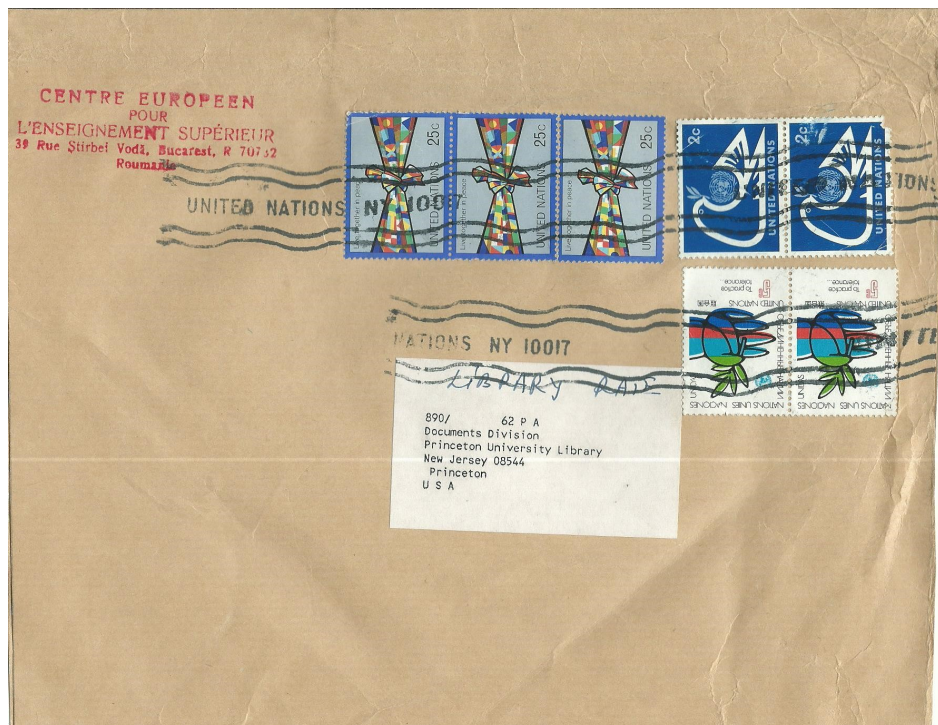 CENTRE EUROPEEN
POUR
L'ENSEIGNEMENT SUPÉRIEUR
39 Rue Știrbei Vodă, Bucarest, R 70732
Roumanie
25c
UNITED NATIONS
Live together in peace
25c
UNITED NATIONS
Live together in peace
25c
UNITED NATIONS
Live together in peace
2c
UNITED NATIONS
2c
UNITED NATIONS
UNITED NATIONS NY 10017
To practice
tolerance...
UNITED NATIONS
NATIONS UNIES
NACIONES
To practice
tolerance...
UNITED NATIONS
NATIONS UNIES
NACIONES
NATIONS NY 10017
LIBRARY RATE
890/ 62 P A
Documents Division
Princeton University Library
New Jersey 08544
Princeton
U S A